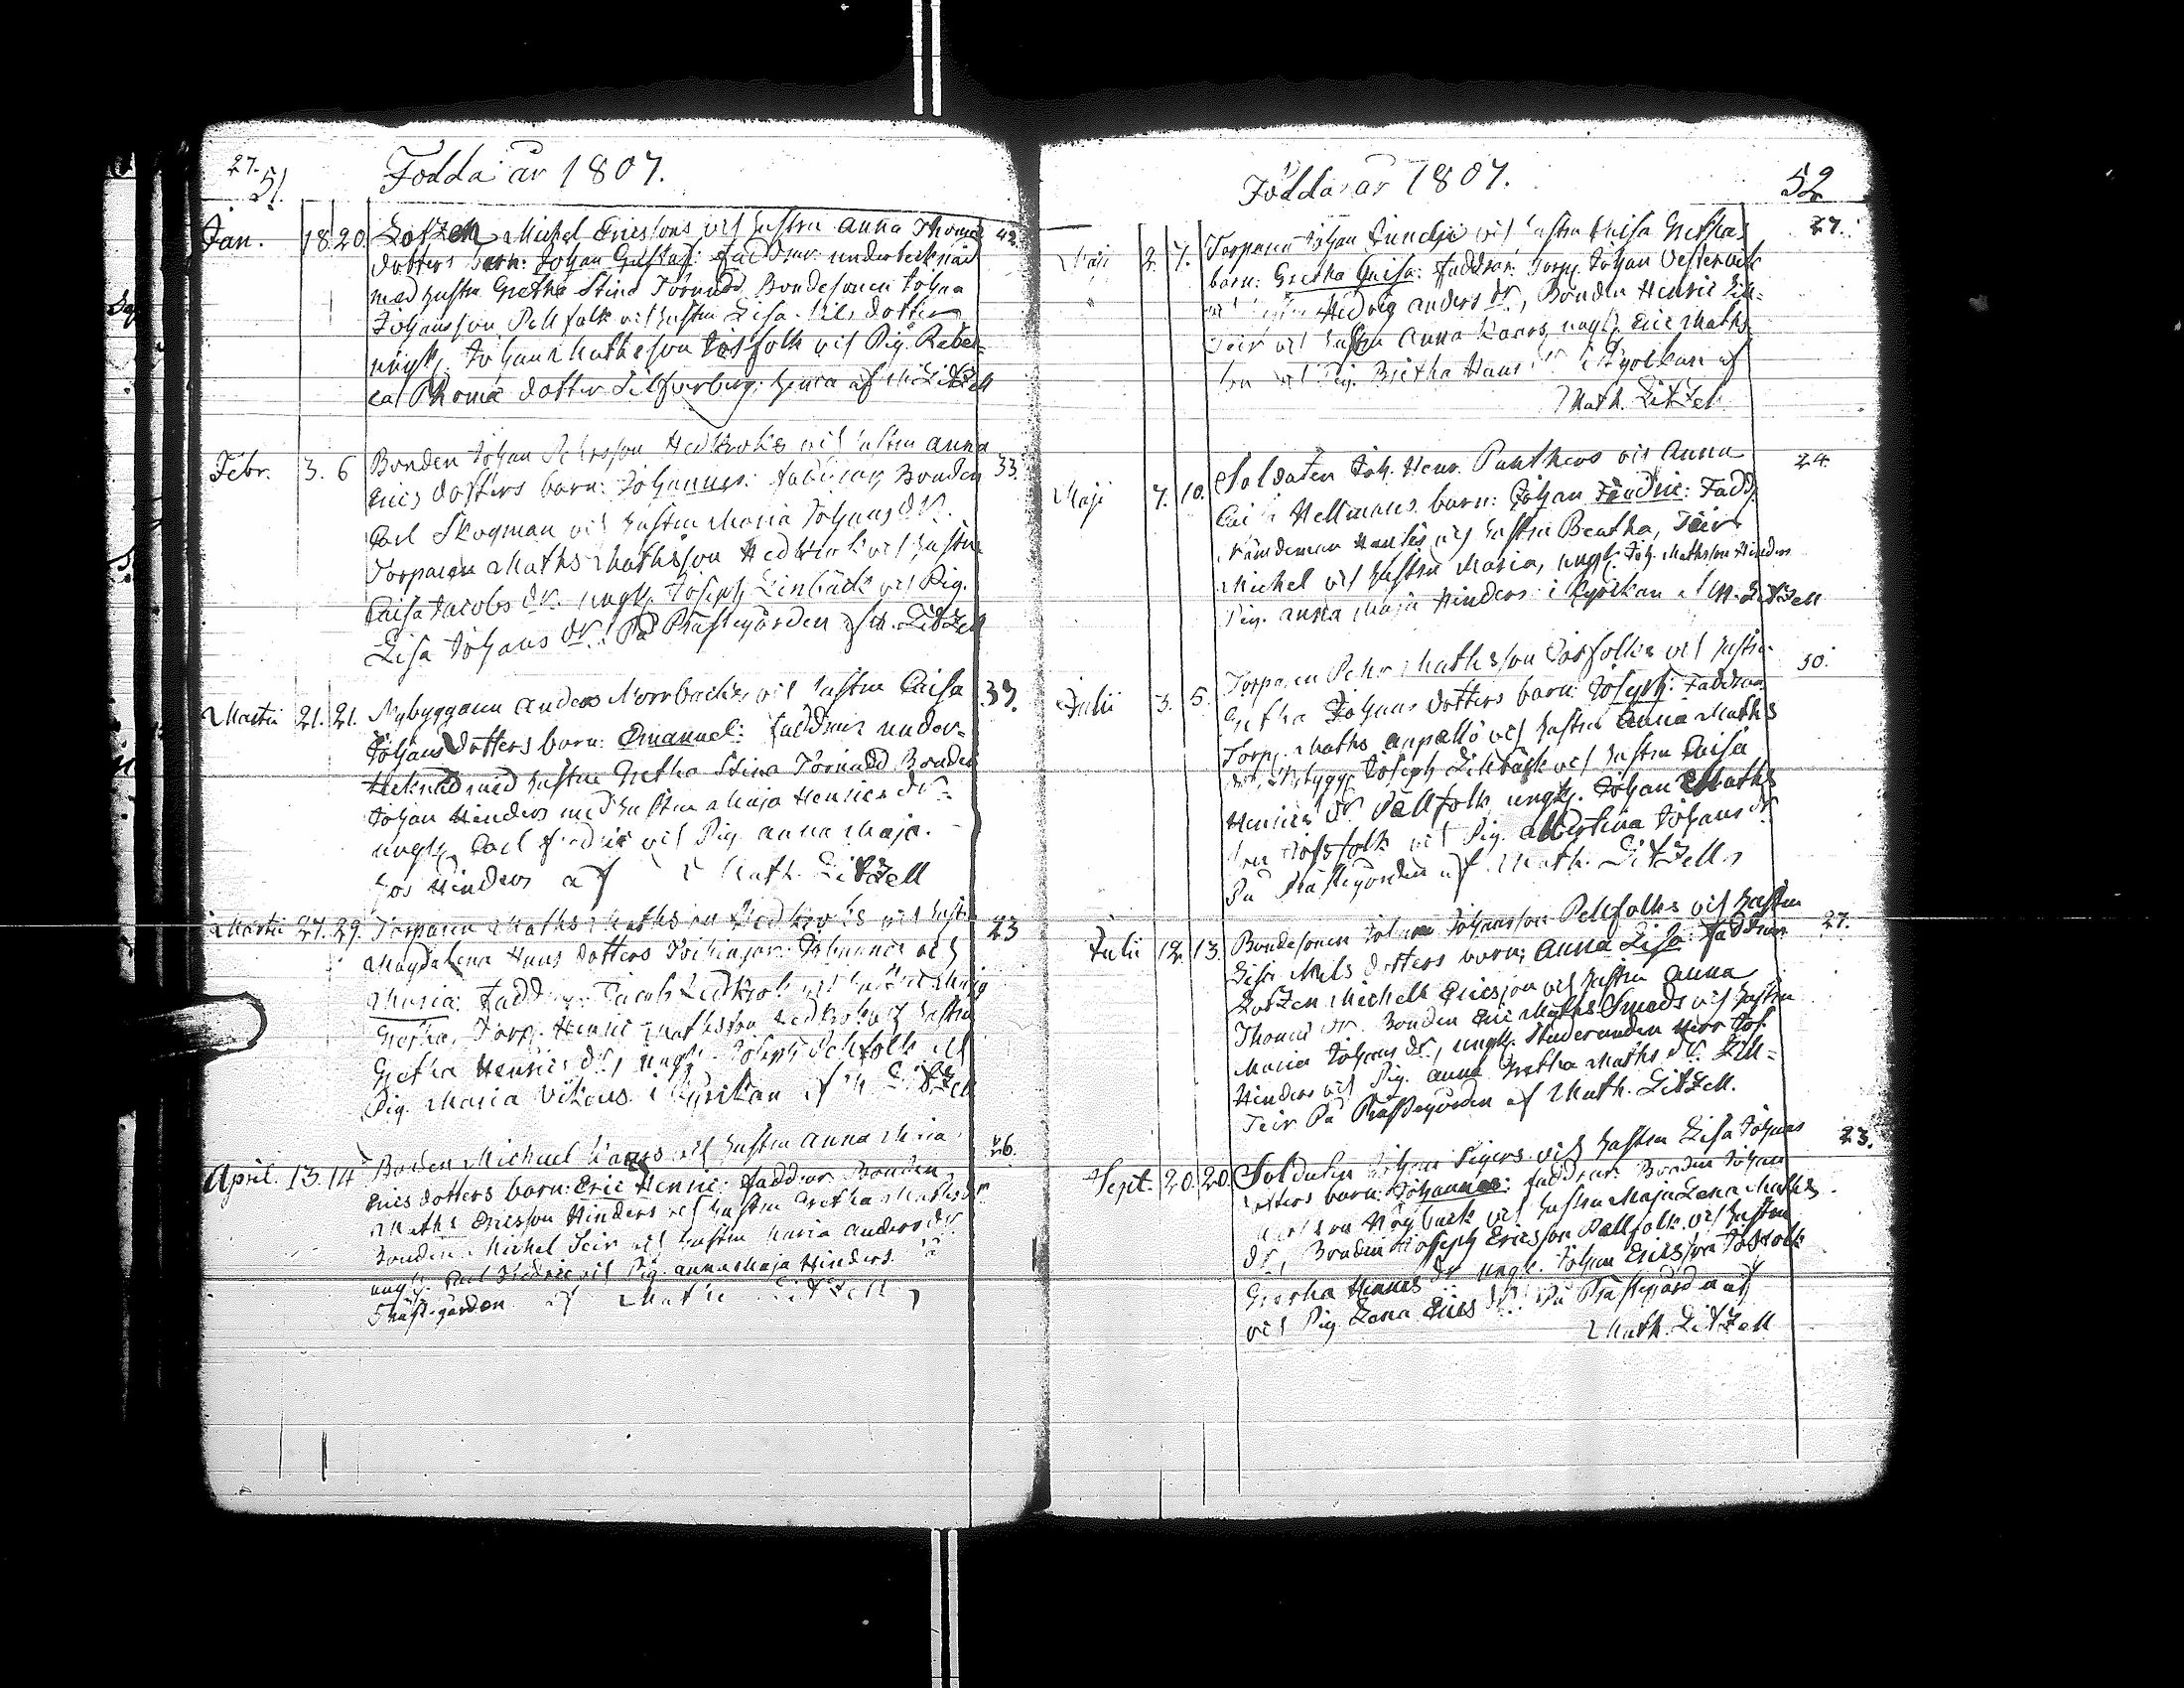 27.
51
Födda år 1807.
Jan. 18 20. Lotzen Michel Ericssons och hustru Anna Thomæ 42
dotters barn: Johan Gustaf: Faddrar: undertecknad
med hustru Gretha Stina Törnudd Bondesonen Johan
Johansson Pellfolk och hustru Lisa Nils dotter
yngl. Johan Mathsson Tösfolk och Pig. Rebec-
ca Thomæ dotter Silfverberg: hema af M Litzell
Febr. 3. 6 Bonden Johan Pehrsson Hedkroks och hustru Anna
Erics dotters barn: Johannes: faddrar, Bonden 33.
Carl Skogman och hustru Maria Johans dr.
Torparen Maths Mathsson Hedkrok och hustru
Caisa Jacobs dr. yngl. Joseph Linbäck och Pig.
Lisa Johans dr.: På Prästegården af M. Litzell
Martii 21. 21. Nybyggaren Anders Norrbacks och hustru Caisa 33.
Johans dotters barn: Emanuel: faddrar under-
tecknad med hustru Gretha Stina Törnudd Bonden
Johan Hinders med hustru Maja Henrics dr.
yngl. Carl Fredric och Pig. Anna Maja.
hos Hinders af Math. Litzell
Martii 27. 29. Torparen Maths Mathsson Hedkroks och hustru 23
Magdalena Hans dotters Tvillingar: Johannes och
Maria: Faddrar: Jacob Hedkrok och hustru Maja
Gretha, Torp. Henric Mathsson Hedkrok och hustru
Gretha Henrics dr, yngl. Joseph Pellfolk och
Pig. Maria Vikars i Kyrkan af M Litzell
April. 13. 14 Bonden Michael Kaars och hustru Anna Maria 26.
Erics dotters barn: Eric Henric: faddrar Bonden
Maths Ericsson Hinders och hustru Gretha Maths dr.
Bonden Michel Teir och hustru Maria Anders dr.
yngl. Carl Fredric och Pig. Anna Maja Hinders. På
Prästegården af Math. Litzell
Födda år 1807.
52
Maji 2. 7. Torparen Johan och hustru Caisa Grethas 27.
barn: Gretha Caisa: Faddrar: Torp. Johan Vestervik
och hustru Hedvig Anders dr, Bonden Henric Lill-
Teir och hustru Anna Kaars, yngl. Eric Maths
son och Pig. Bretha Hans dr i Kyrkan af
Math. Litzell
Maji 7. 10. Soldaten Joh. Henr. Panthers och Anna 24.
Caisa Hellmans barn: Johan Fredric: Fadd.
Nämdeman och hustru Beatha, Teir
Michel och hustru Maria, yngl. Joh. Mathsson Hinders
Pig. Anna Maja Hinders i Kyrkan af M. Litzell
Julii 3. 5. Torparen Pehr Mathsson Tösfolks och hustru 30.
Gretha Johans dotters barn: Joseph: Faddrar
Torp. Maths Anpallo och hustru Anna Maths
dr, Nybygg. Joseph Lillbäck och hustru Caisa
Henrics dr. Pällfolk, yngl. Johan Maths
son Tösfolk och Pig. Albertina Johans dr.
På Prästegården af Math. Litzell
Julii 12. 13. Bondesonen Johan Johansson Pellfolks och hustru 27.
Lisa Nils dotters barn: Anna Lisa: Faddrar
Lotzen Michell Ericsson och hustru Anna
Thomæ dr. Bonden Eric Maths Smeds och hustru
Maria Johans dr., yngl. Studeranden Herr Jos.
Hinders och Pig. Anna Gretha Maths dr. Lill-
Teir På Prästegården af Math. Litzell.
Sept. 20. 20. Soldaten Johan Tigers och hustru Lisa Johans 23.
dotters barn: Johannes: faddrar: Bonden Johan
Carlsson Högback och hustru Maja Lena Maths
dr, Bonden Joseph Ericsson Pellfolk och hustru
Gretha Henrics dr. yngl. Johan Ericsson Tösfolk
och Pig Lena Erics dr.: På Prästegården af
Math. Litzell